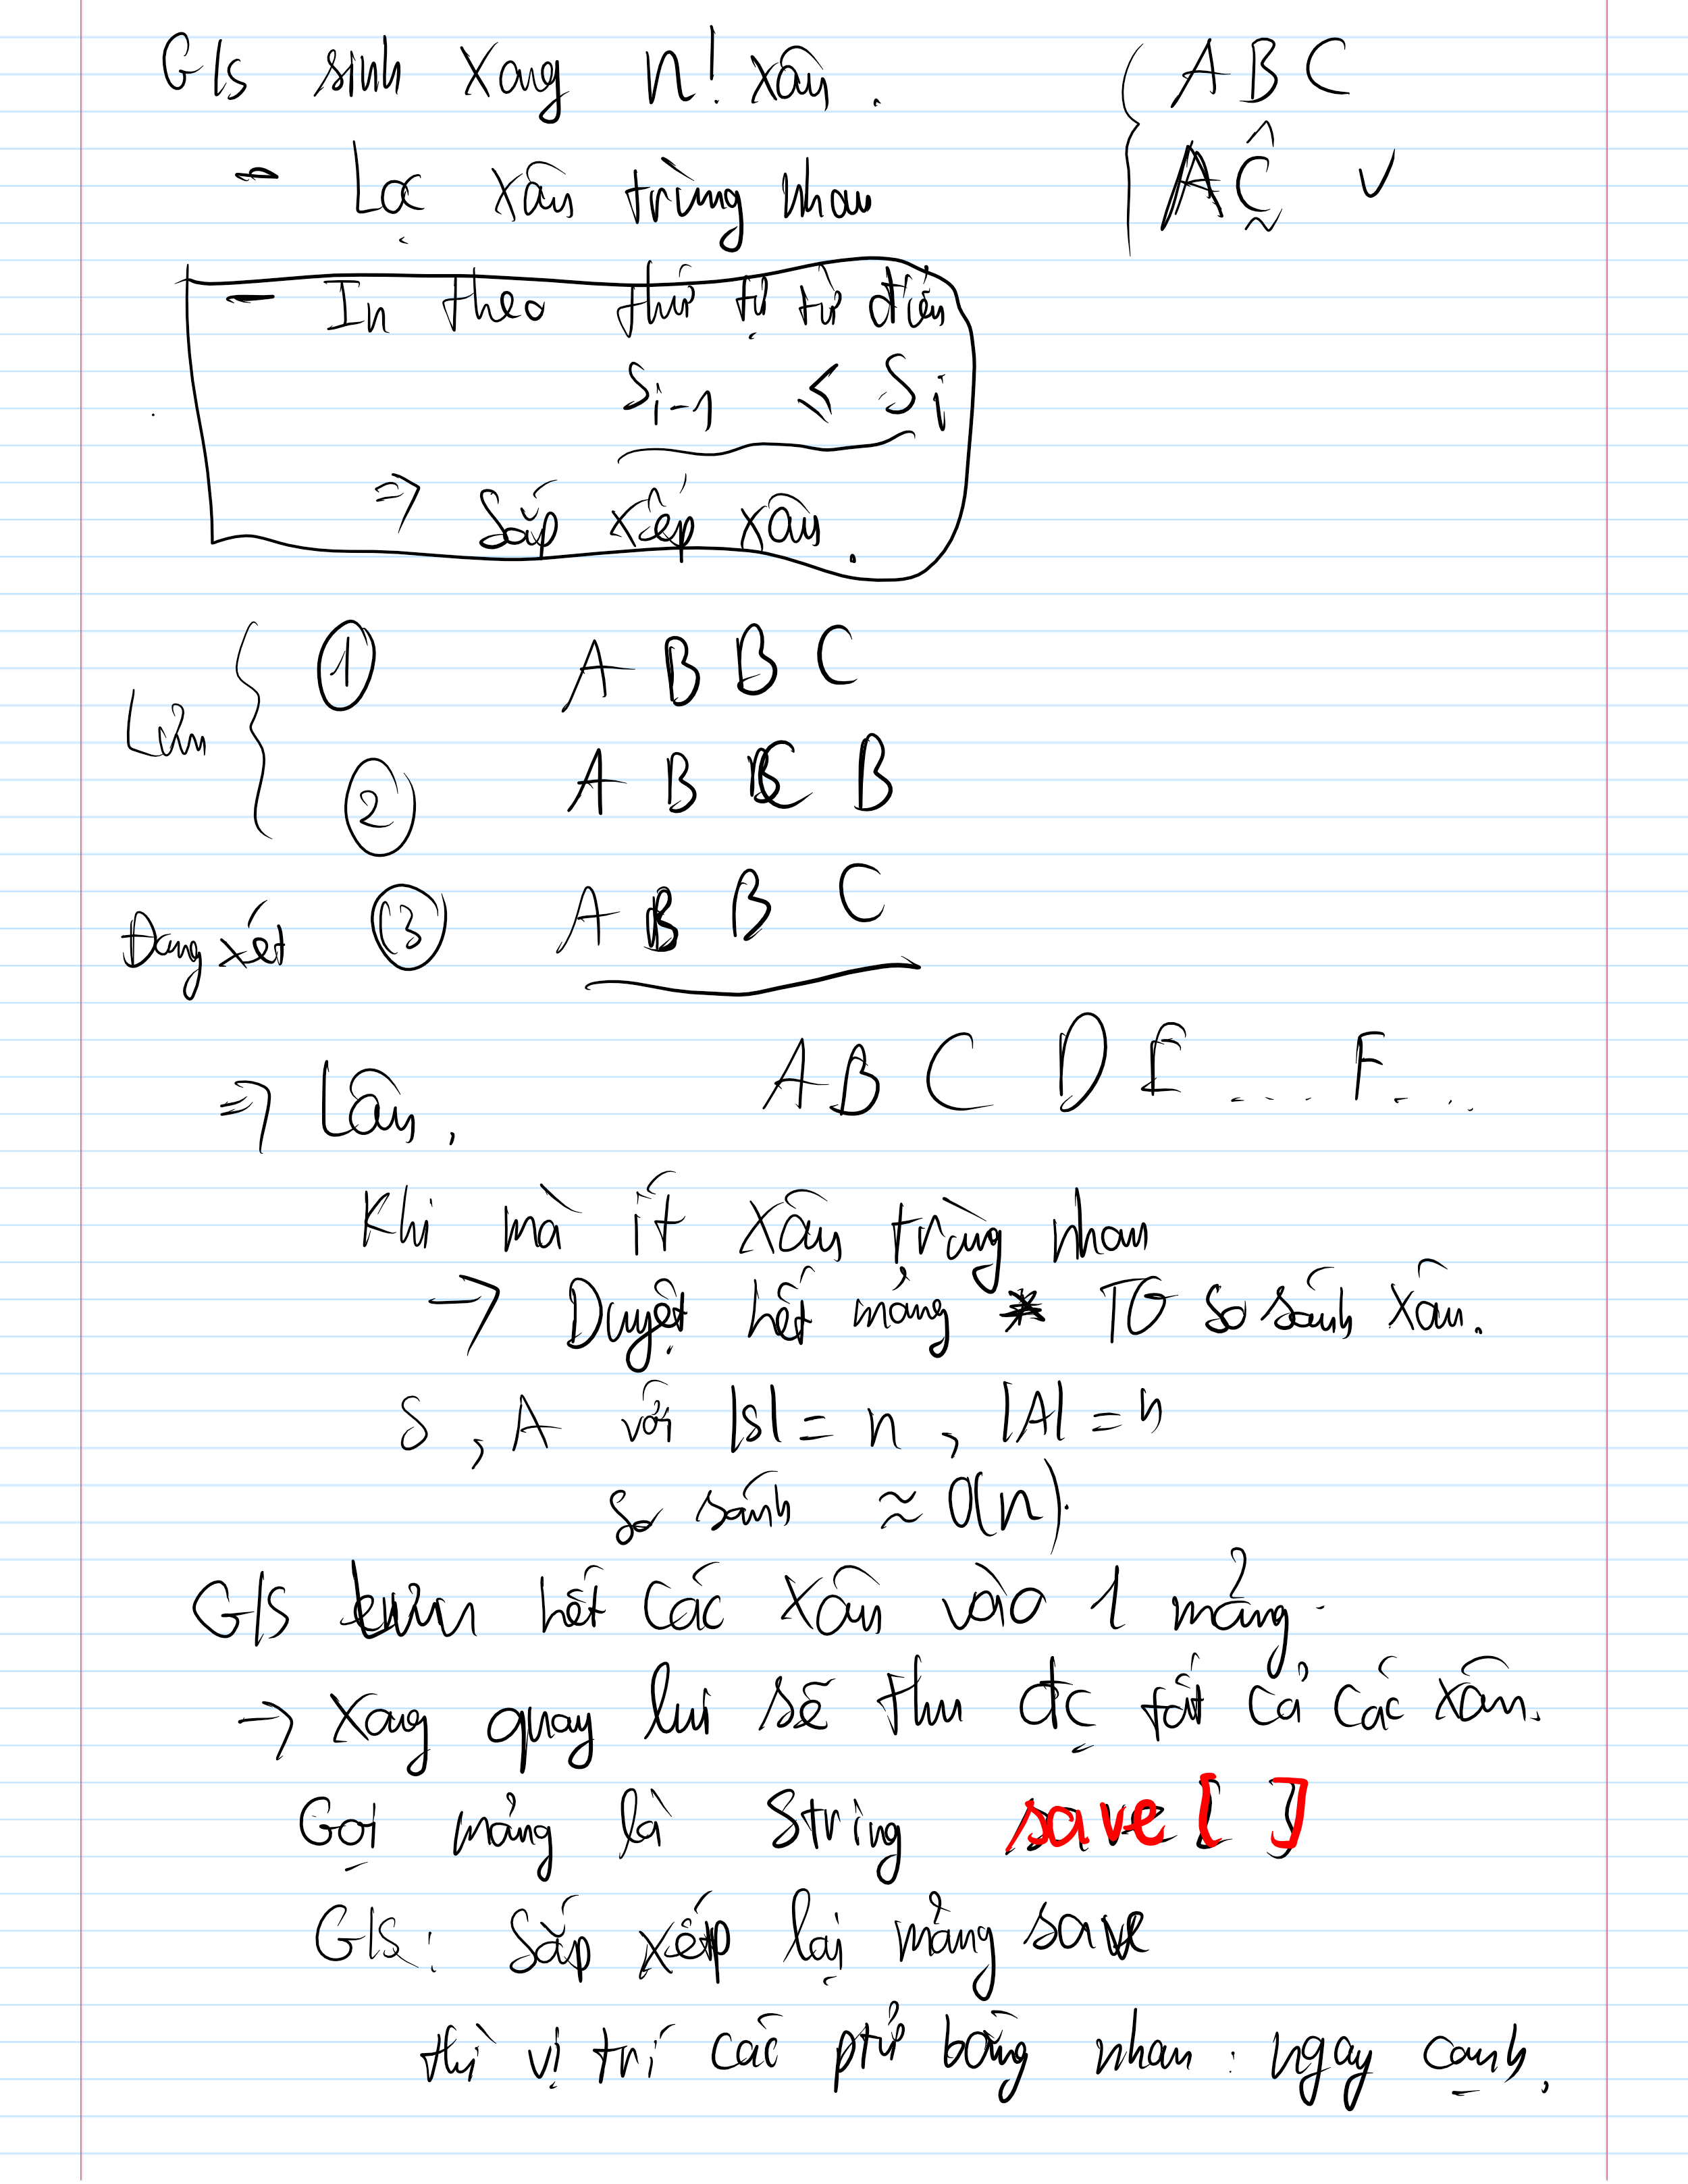 G/s sinh xong n! xâu. ABC
- Lọc xâu trùng nhau AC
- In theo thứ tự từ điển
Si-1 ≤ Si
=> Sắp xếp xâu.
① A B B C
Lưu
② A B C B
Đang xét ③ A B B C
A B C D E .... F. ...
=> Lâu.
Khi mà ít xâu trùng nhau
-> Duyệt hết mảng * TG so sánh xâu.
S, A với |S| = n, |A| = n
so sánh ≈ O(n).
G/s lưu hết các xâu vào 1 mảng.
-> Xong quay lui sẽ thu đc tất cả các xâu.
Gọi mảng là string save[ ]
G/s: Sắp xếp lại mảng save
thì vị trí các ptử bằng nhau: ngay cạnh.